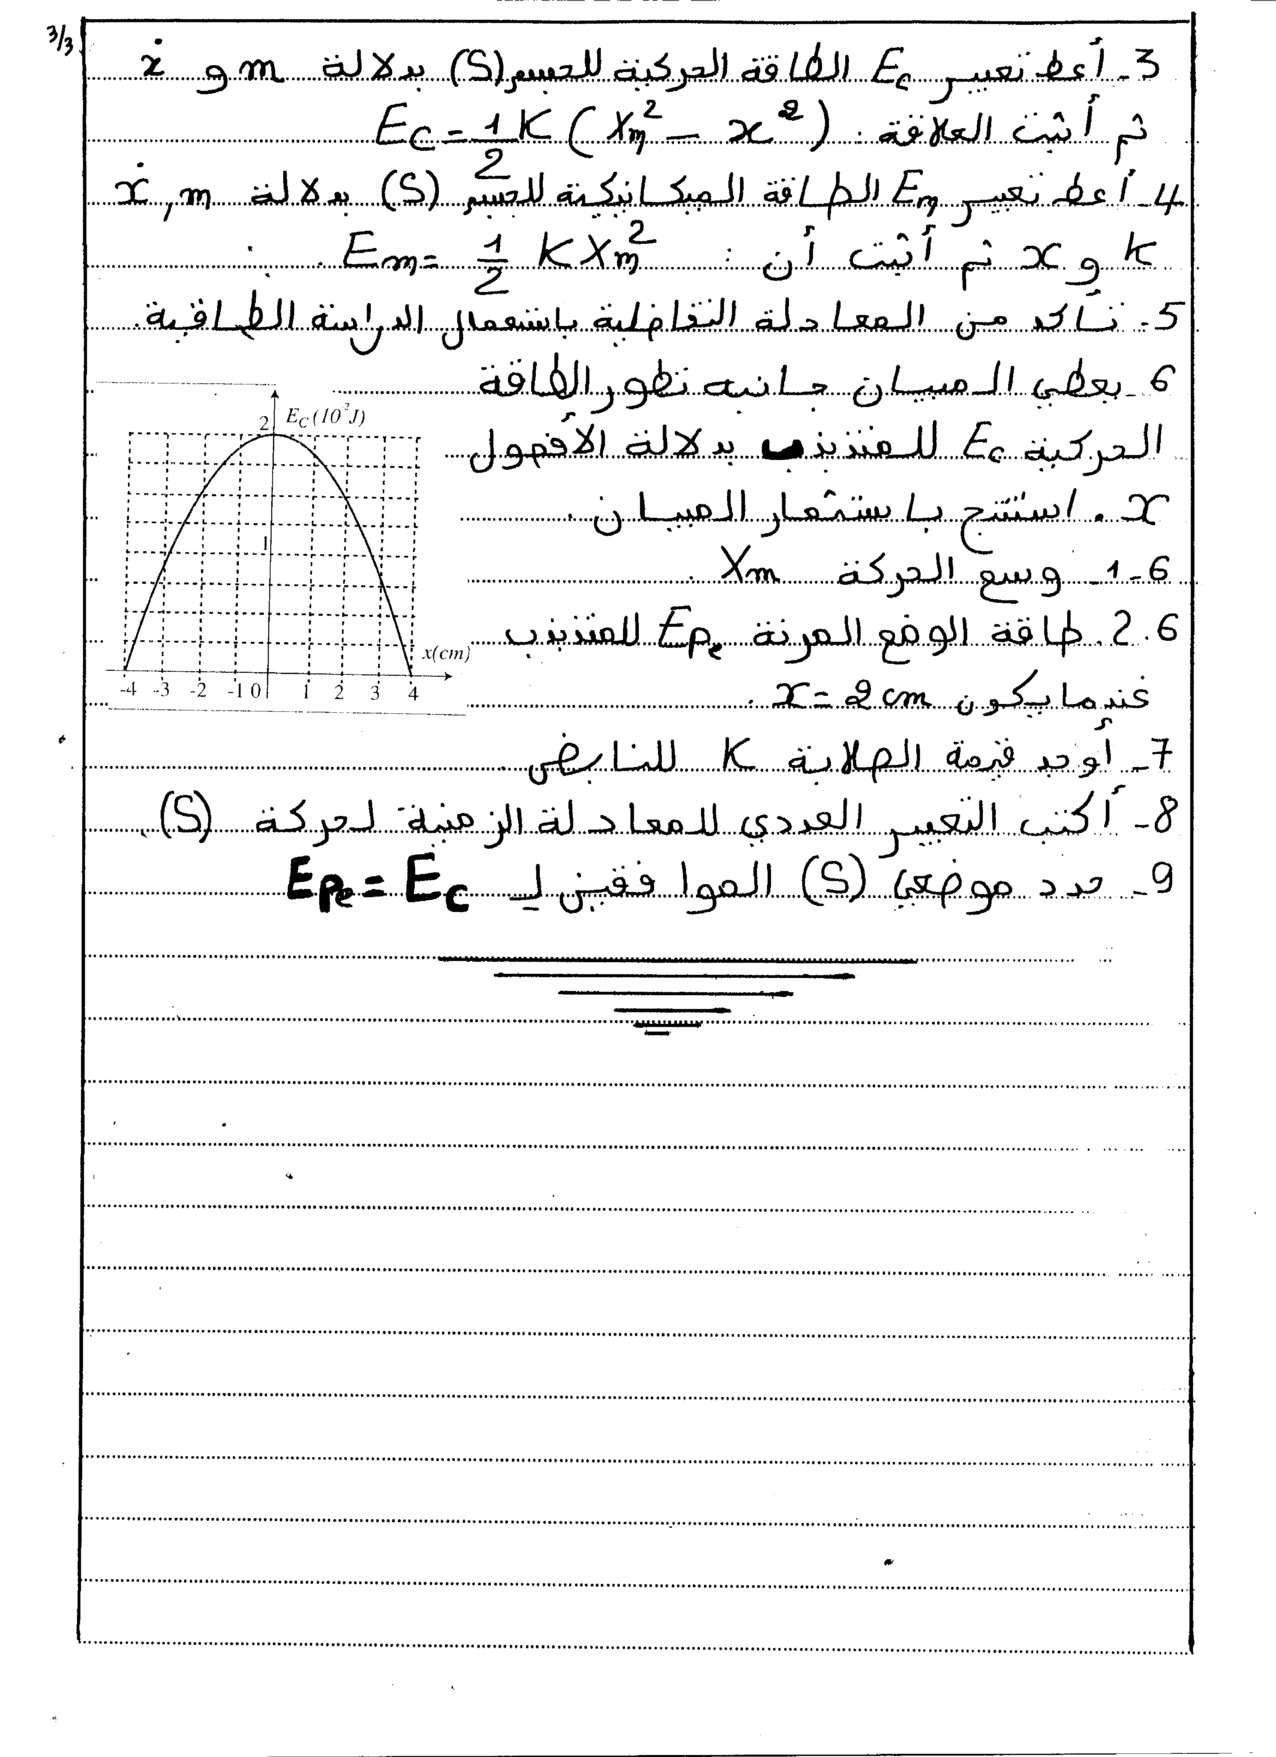 3/3
3- أعط تعبير Ec الطاقة الحركية للجسم (S) بدلالة m و ẋ
ثم أثبت العلاقة: Ec = 1/2 K (Xm² - x²)
4- أعط تعبير Em الطاقة الميكانيكية للجسم (S) بدلالة ẋ, m
k و x ثم أثبت أن: Em = 1/2 K Xm².
5- تأكد من المعادلة التفاضلية باستعمال الدراسة الطاقية.
6- يعطي المبيان جانبه تطور الطاقة
الحركية Ec للمتذبذب بدلالة الأفصول
x. استنتج باستثمار المبيان.
6-1- وسع الحركة Xm.
6.2. طاقة الوضع المرنة Epe للمتذبذب
عندما يكون x = 2 cm.
Ec (10² J)
2
1
x(cm)
-4 -3 -2 -1 0 1 2 3 4
7- أوجد قيمة الصلابة K للنابض
8- أكتب التعبير العددي للمعادلة الزمنية لحركة (S).
9- حدد موضعي (S) الموافقين لـ Epe = Ec